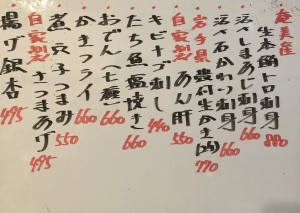 奄美産 生本鮪トロ刺身 880
活〆しまあじ刺身 660
活〆石がわり刺身 660
岩手県 殻付生かき(2ヶ) 770
自家製 あん肝 550
キビナゴ刺し 440
たち魚塩焼き 660
おでん(七種) 660
かきフライ 660
煮穴子つまみ 550
自家製 さつまあげ 495
揚げ銀杏 495